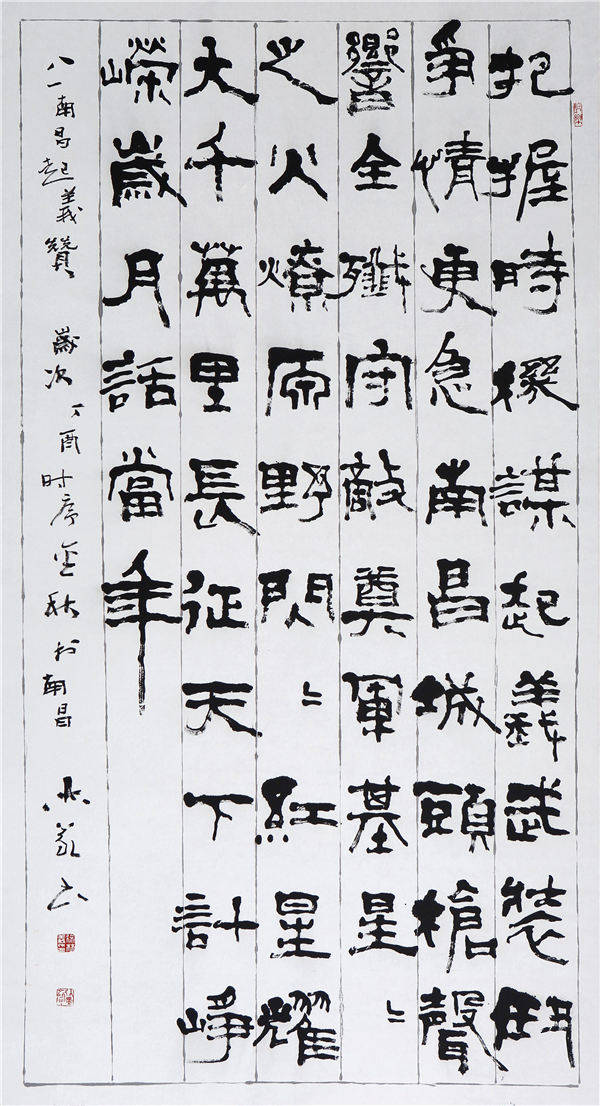 把握時機謀起義武裝鬥
爭情更急南昌城頭槍聲
響全殲守敵奠軍基星〻
之火燎原野閃〻紅星耀
大千萬里長征天下計崢
嶸歲月話當年
八一南昌起義贊 歲次丁酉时序金秋於南昌